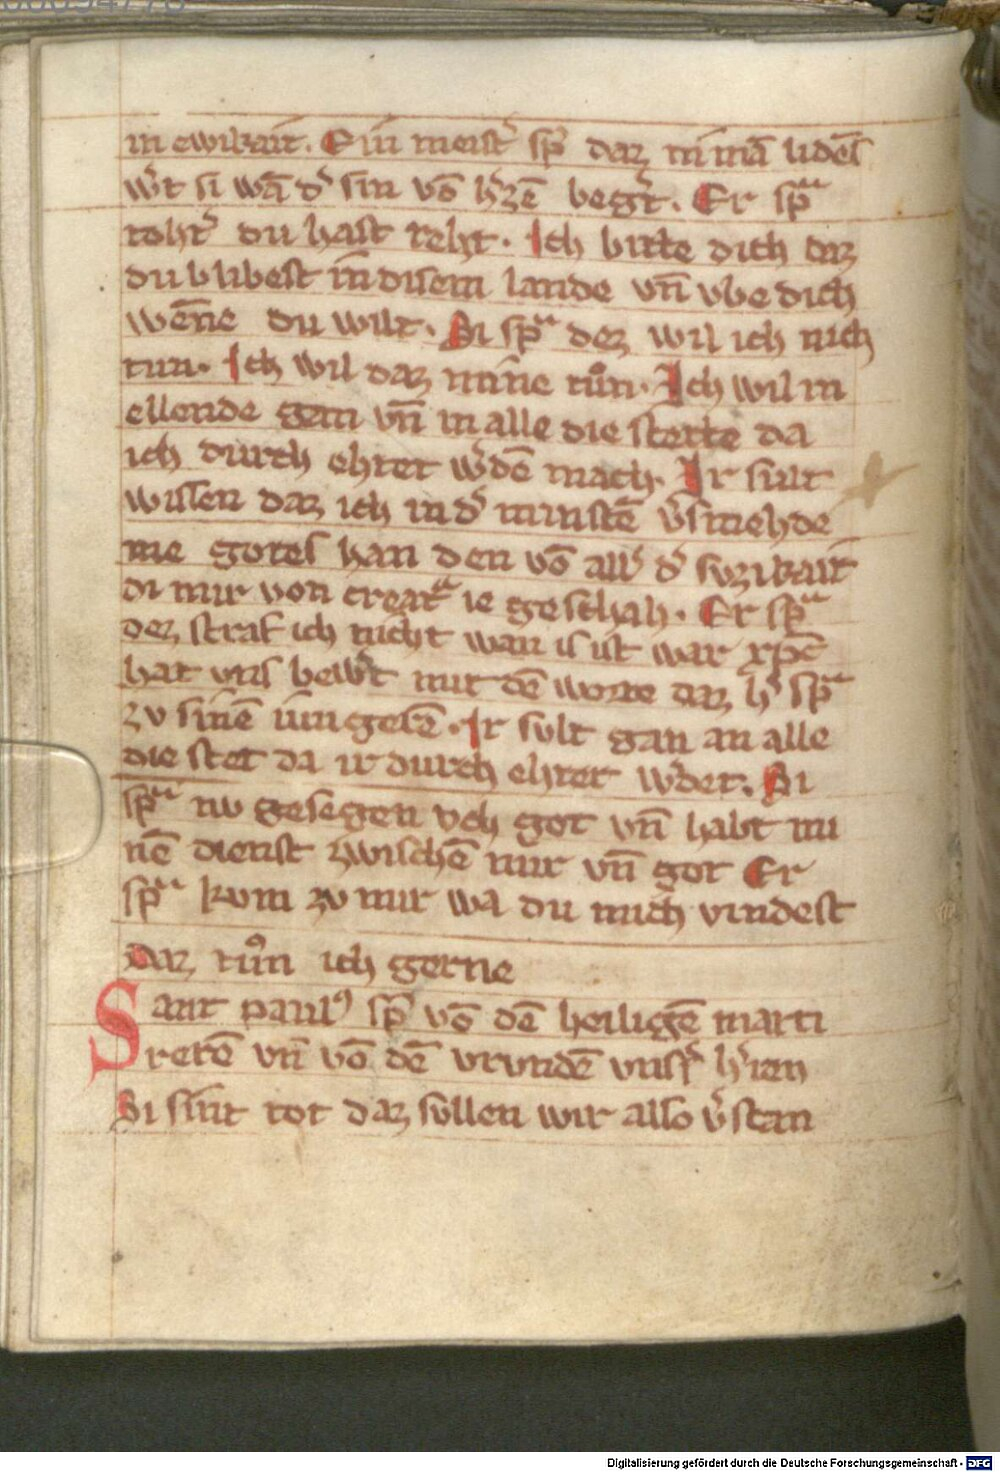 in ewikait. Ein meist͛ sp̄ daz niman̄ lidēs
w͛t si wā d͛ sin vō h͛zē begͣt. Er spͣ
toht͛ du hast reht. Ich bitte dich daz
du blibest in disem lande vn̄ vbe dich
wēne du wilt. Si spͣ dez wil ich nich
tun. Ich wil daz mine tuͦn. Ich wil in
ellende gein vn̄ in alle die stette da
ich durch ehtet w͛dē mach. Ir sult
wissen daz ich in d͛ minstē v͛smehde
me gotes han den vō all͛ d͛ suzikait
di mir von creatͣ ie geschah. Er spͣ
dez straf ich nicht wan is ist war xp̄c
hat vns bew͛t mit dē worte daz h͛ spͣ
zv sinē iungerē. Ir sult gan an alle
die stet da ir durch ehtet w͛det. Si
spͣ nv gesegen vch got vn̄ habt mi
nē dienst zwischē mir vn̄ got Er
spͣ kvm zv mir wa du mich vindest
Daz tuͦn ich gerne
Sant paulꝰ sp̄ vō dē heiligē marti
rerē vn̄ vō dē vrundē vns͛s h͛ren
Si sint tot daz sullen wir also v͛stan
Digitalisierung gefördert durch die Deutsche Forschungsgemeinschaft - DFG